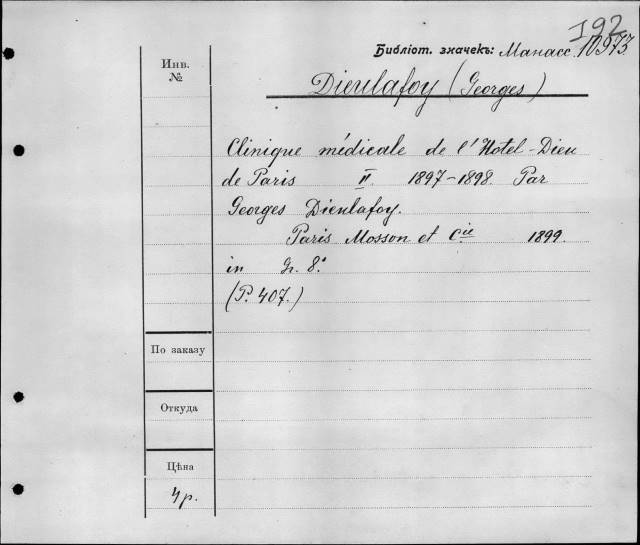 192
Библіот. значекъ: Манасс. 10973
Инв.
№
Dieulafoy (Georges)
Clinique médicale de l'Hotel-Dieu
de Paris II. 1897-1898. Par
Georges Dieulafoy.
Paris Mosson et Cie 1899.
in Gr. 8.°
(P. 407.)
По заказу
Откуда
Цѣна
4 р.